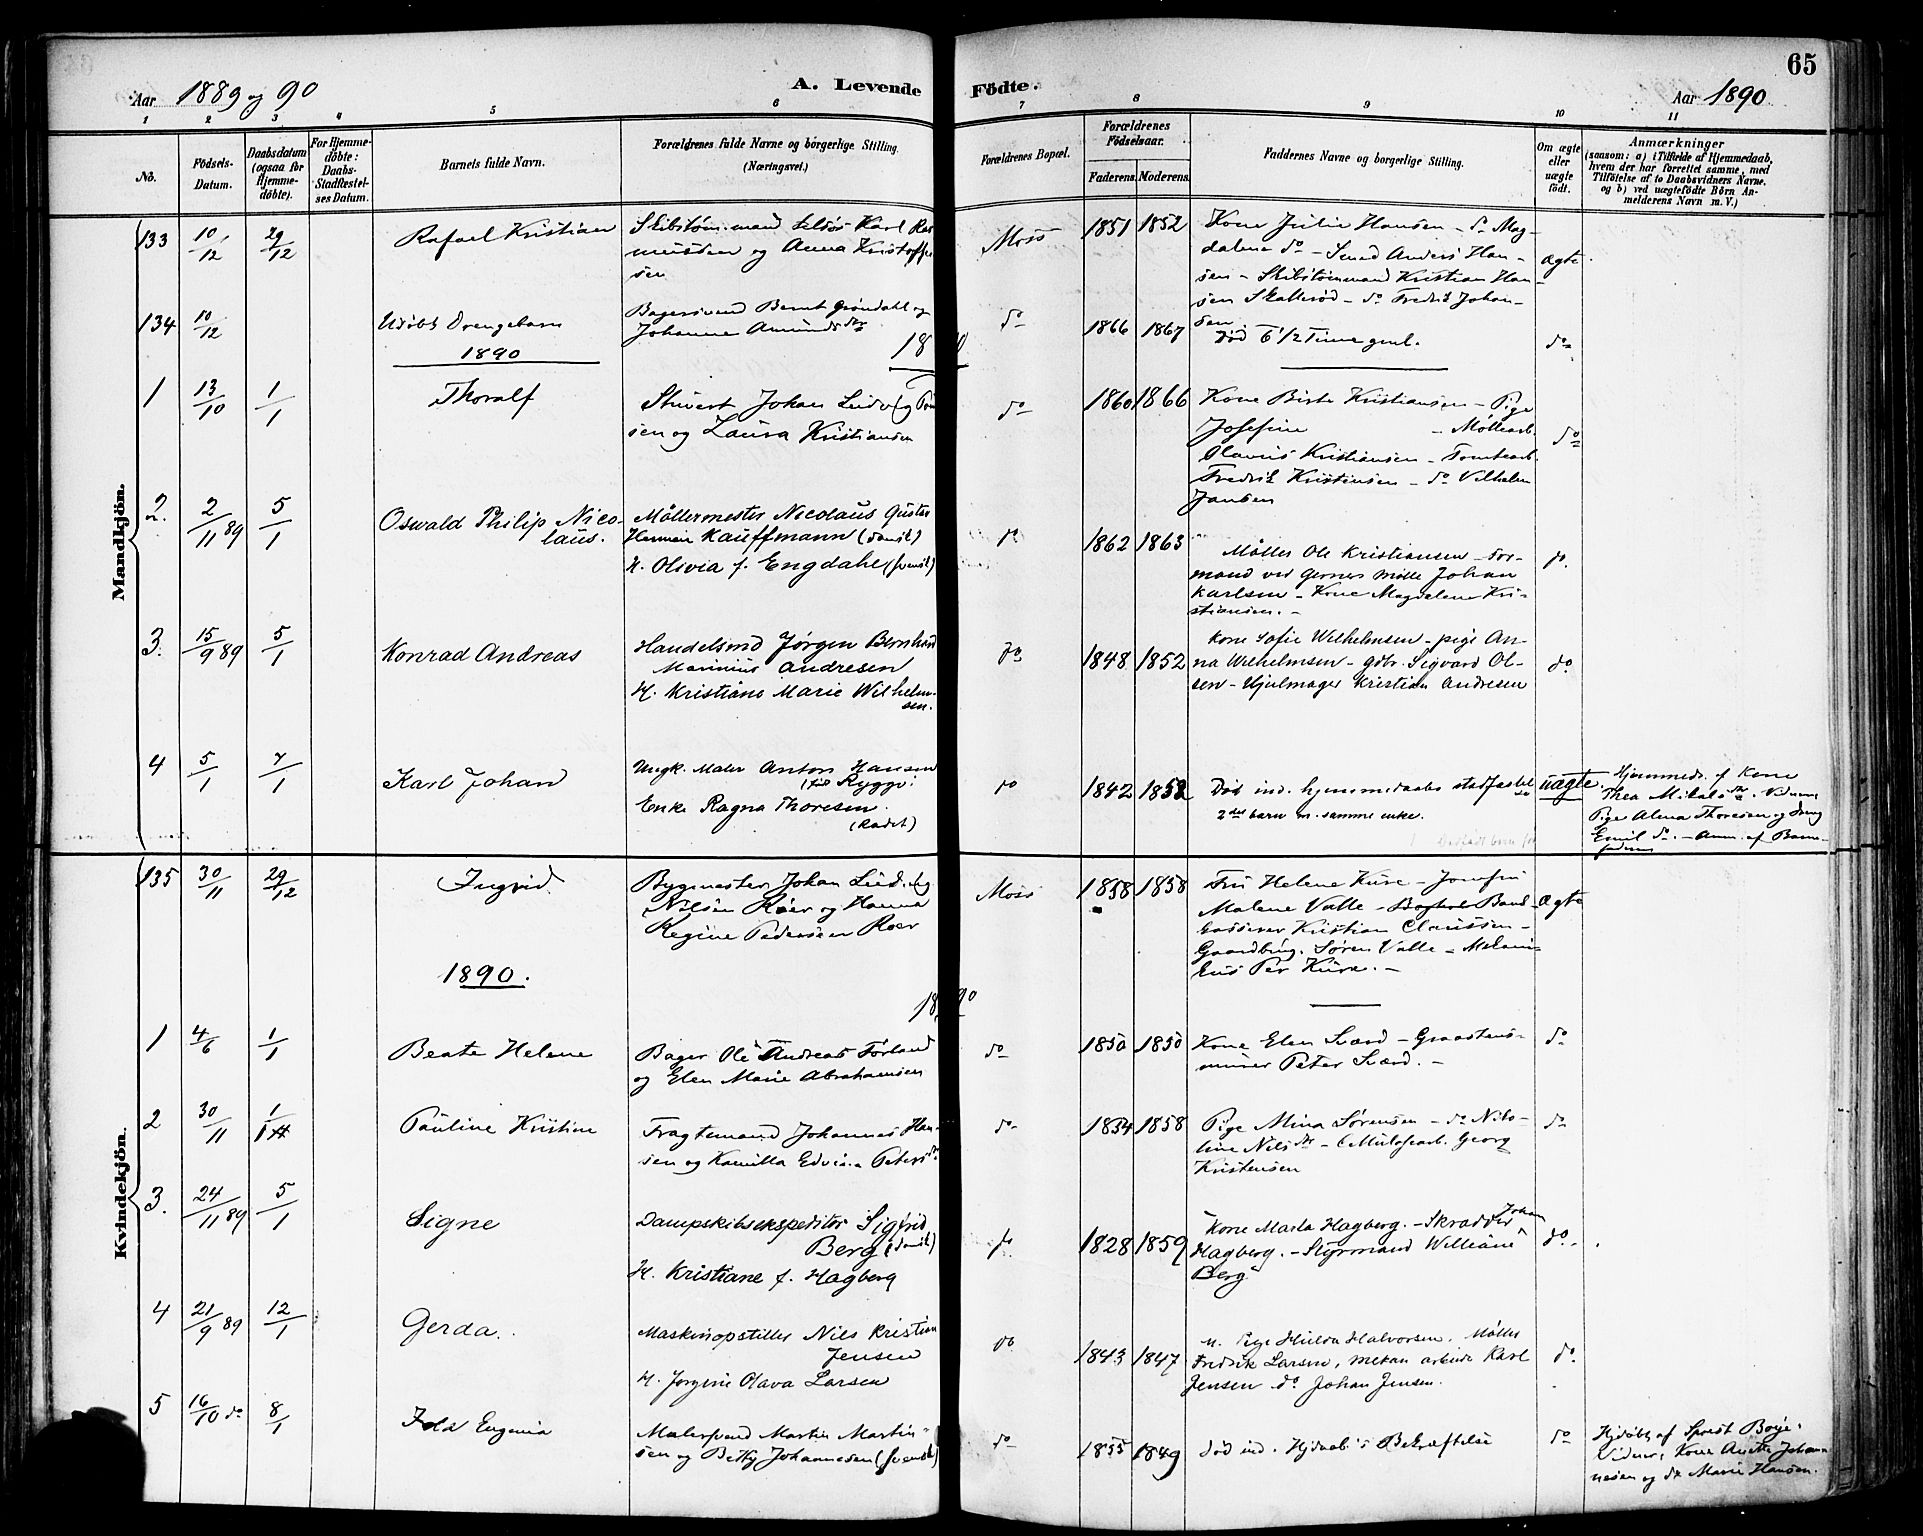 65
Aar 1889 og 90
A. Levende Fødte.
Aar 1890
1 2 3 4 5 6 7 8 9 10 11
No.
Fødsels-
Datum.
Daabsdatum
(ogsaa for
Hjemme-
døbte).
For Hjemme-
døbte:
Daabs-
Stadfæstel-
ses Datum.
Barnets fulde Navn.
Forældrenes fulde Navne og borgerlige Stilling.
(Næringsvei.)
Forældrenes Bopæl.
Forældrenes
Fødselsaar.
Faderens. Moderens.
Faddernes Navne og borgerlige Stilling.
Om ægte
eller
uægte
født.
Anmærkninger
(saasom: a) i Tilfælde af Hjemmedaab,
hvem der har forrettet samme, med
Tilføielse af to Daabsvidners Navne,
og b) ved uægtefødte Børn An-
melderens Navn m. V.)
Mandkjön.
133 10/12 29/12 Rafael Kristian
Skibstømmand Karl Ras
mussen og Anna Kristoffer
sen
Moss 1851 1852
Kone Julie Hansen - do Mag-
dalena do - Smed Anders Han-
sen - Skibstømmand Kristian Han
sen Skallerød - do Fredrik Johan-
sen
ægte
134 10/12 Udøbt Drengebarn
Bagersvend Bernt Grøndahl og
Johanne Amundsdtr
do 1866 1867
Død 6 1/2 Time gml.
do
1890
1890
1 13/10 1/1 Thoralf
Stuert Johan Ludvig
sen og Laura Kristiansen
do 1860 1866
Kone Birte Kristiansen - Pige
Josefine - Møllearb.
Olavus Kristiansen - Tomtearb.
Fredrik Kristensen - do Vilhelm
Jansen
do
2. 2/11 89 5/1 Oswald Philip Nico-
laus.
Møllermester Nicolaus Gustav
Herman Kauffmann (dansk)
H. Olivia f. Engdahl (svensk)
do 1862 1863
Møller Ole Kristiansen - For-
mand ved Gernes Mølle Johan
Karlsen - Kone Magdalene Kri-
stiansen. -
do.
3. 15/9 89 5/1 Konrad Andreas
Handelsmd Jørgen Bernhard
Marinius Andresen
H. Kristiane Marie Wilhelm-
sen.
do 1848 1852
Kone Sofie Wilhelmsen - pige An-
na Wilhelmsen - gdbr. Sigvard Ol-
sen - Hjulmager Kristian Andresen
do.
4 5/1 7/1 Karl Johan
Ungk. Maler Anton Hansen
(til Rygge)
Enke Ragna Thoresen.
(Radet)
do 1842 1852
Død ind. hjemmedaabs stadfæstelse
2det barn m. samme enke.
uægte.
Hjemmedr. af Kone
Thea Mikalsdtr. Vidner
Pige Alma Thoresen og Dreng
Emil do. - Anm. af Barne-
faderen
Kvindekjön.
135 30/11 29/12 Ingrid.
Bygmester Johan Ludvig
Nilsen Röer og Hanna
Regine Pedersen Roer
Moss 1858 1858
Fru Helene Kure - Jomfru
Malene Valle - Bank-
kasserer Kristian Claussen -
Gaardbrug. Søren Valle - Mekani-
kus Per Kure. -
ægte
1890.
1890
1 4/6 1/1 Beate Helene
Bager Ole Andreas Førland
og Elen Marie Abrahamsen
do 1850 1850
Kone Elen Sværd - Graastens-
murer Peter Sværd. -
do
2 30/11 1/1 Pauline Kristine
Fragtemand Johannes Han-
sen og Kamilla Edvina Petersdtr
do 1834 1858
Pige Mina Sørensen - do Nils-
line Nilsdtr - Georg
Kristensen
do
3. 24/11 89 5/1 Signe
Dampskibsekspeditör Sigfrid
Berg (dansk)
H. Kristiane f. Hagberg
do 1828 1859
Kone Marta Hagberg. - Skrædder Johan
Hagberg. - Styrmand Williane
Berg
do.
4 21/9 89 12/1 Gerda.
Maskinopstiller Nils Kristian
Jensen
H. Jørgine Olava Larsen
do 1843 1847
Pige Hulda Halvorsen. Møller
Fredrik Larsen, mekan arbeider Karl
Jensen do Johan Jensen.
do.
5 16/10 do 8/1 Eugenia
Malersvend Martin Martin-
sen og Betty Johannesen (svensk)
do 1855 1849
Død ind. Hjdaabs Bekræftelse
do
Hjdøbt af Sprest Boye.
Vidner, Kone Anette Johan
nesen og do Marie Hansen.